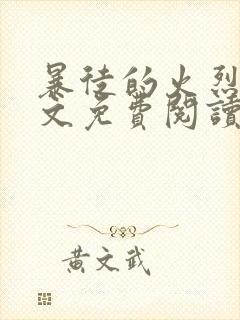 暴徒的火烈
文免費閱讀
黃文武